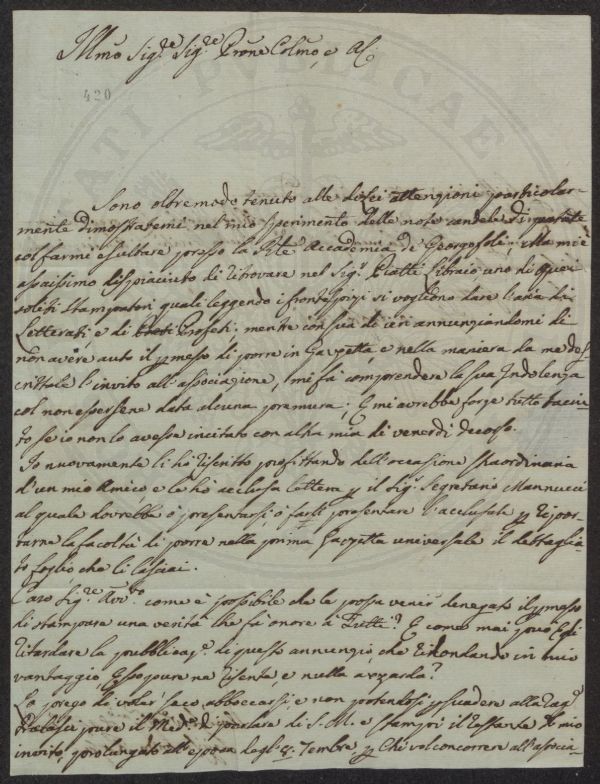 Illmo Sig.re Sig.re Prone Colmo, e
420
Sono oltremodo tenuto alle di Lei attenzioni particolar-
mente dimostratemi nel mio sperimento delle note candele
col farmi esultare presso la Rle Accademia de Georgofoli; Ma mi è
assaissimo dispiaciuto di ritrovare nel Sig. Piatti Libraio uno di quei
soliti Stampatori quali leggendo i frontespizi si vogliono dare l'aria di
Letterati, e di Profeti: mentre con sua di ieri annunziandomi di
non avere auto il pmesso di porre in Gazzetta, e nella maniera da me de-
scrittale l'invito all'associazione, mi fà comprendere la sua Indolenza
col non essersene data alcuna premura; E mi avrebbe forse tutto tacciu-
to se io non lo avesse incitato con altra mia di venerdì decorso.
Io nuovamente li hò riscritto profittando dell'occasione straordinaria
d'un mio Amico, e le hò acclusa lettera p il Sig. Segretario Mannucci
al quale dovrebbe ò presentarsi, ò farli presentare l'acclusale p ripor-
tarne la facoltà di porre nella prima Gazzetta universale il dettaglia-
to foglio che li lasciai.
Caro Sig.re come è possibile che le possa venir denegato il pmesso
di stampare una verità che fà onore à Tutti? E come mai puol Egli
ritardare la pubblicaz.e di questo annunzio, che ridondando in mio
vantaggio, Esso pure ne risente, e nulla azzarda?
La prego di volar seco abboccarsi, e non potendosi psuadere alla
tralasci pure il di parlare di S.M. e stampi il restante del mio
invito, prolungato all'epoca degl' 8: Tembre, p Chi vol concorrere all'associa-